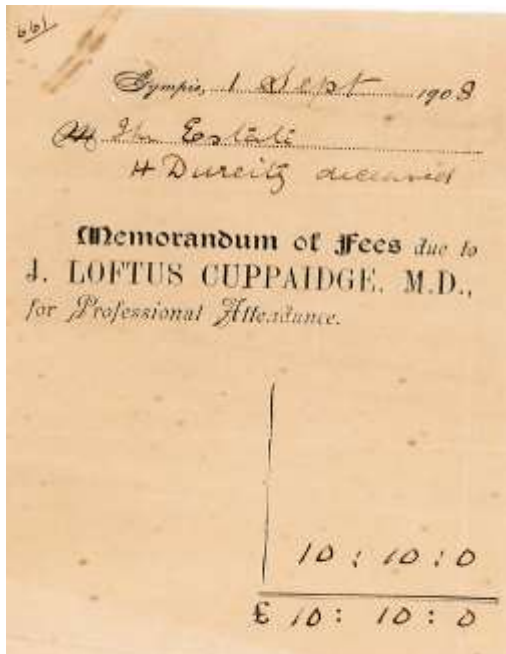 661
Gympie, 1 Sept 1908
M The Estate
H Dureitz deceased
Memorandum of Fees due to
J. LOFTUS CUPPAIDGE, M.D.,
for Professional Attendance.
10 : 10 : 0
£ 10 : 10 : 0